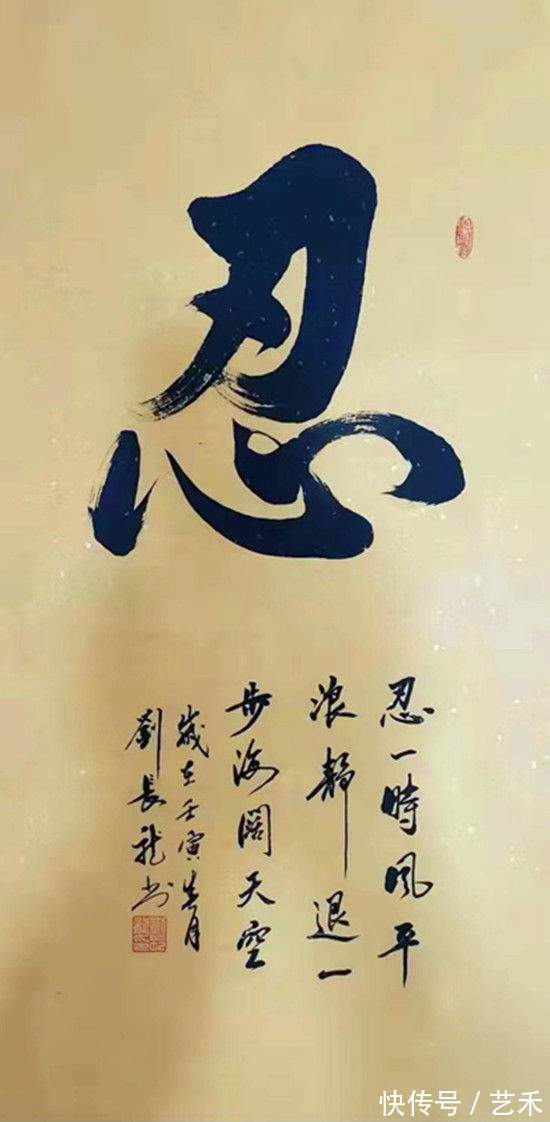 忍
忍一時風平
浪靜退一
步海闊天空
歲在壬寅春月
劉長龍书
快传号/艺禾